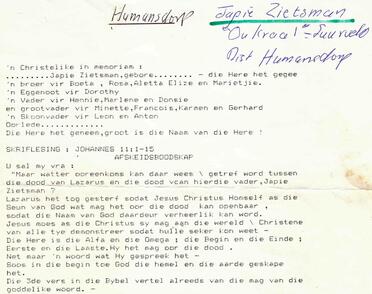 Humansdorp
Japie Zietsman
"Ou Kraal" - Suurveld
Dist Humansdorp
'n Christelike in memoriam :
.........Japie Zietsman,gebore........ - die Here het gegee
'n broer vir Boeta , Rosa,Aletta Elize en Marietjie.
'n Eggenoot vir Dorothy
'n Vader vir Hennie,Marlene en Donsie
en grootvader vir Minette,Francois,Karmen en Gerhard
'n Skoonvader vir Leon en Anton
Oorlede..............
Die Here het geneem,groot is die Naam van die Here !
SKRIFLESING : JOHANNES 11:1-15
AFSKEIDSBOODSKAP
U sal my vra :
"Maar watter ooreenkoms kan daar wees \ getref word tussen
die dood van Lazarus en die dood vcan hierdie vader,Japie
Zietsman ?
Lazarus het tog gesterf sodat Jesus Christus Homself as die
Seun van God wat mag het oor die dood kan openbaar ,
sodat die Naam van God daardeur verheerlik kan word.
Jesus moes as die Christus sy mag aan die wereld \ Christene
van alle tye demonstreer sodat hulle seker kon weet -
Die Here is die Alfa en die Omega ; die Begin en die Einde ;
Eerste en die Laaste.Hy het mag oor die dood .
Net maar 'n woord wat Hy gespreek het -
Soos in die begin toe God die hemel en die aarde geskape
het.
Die 3de vers in die Bybel vertel alreeds van die mag van die
goddelike woord. -